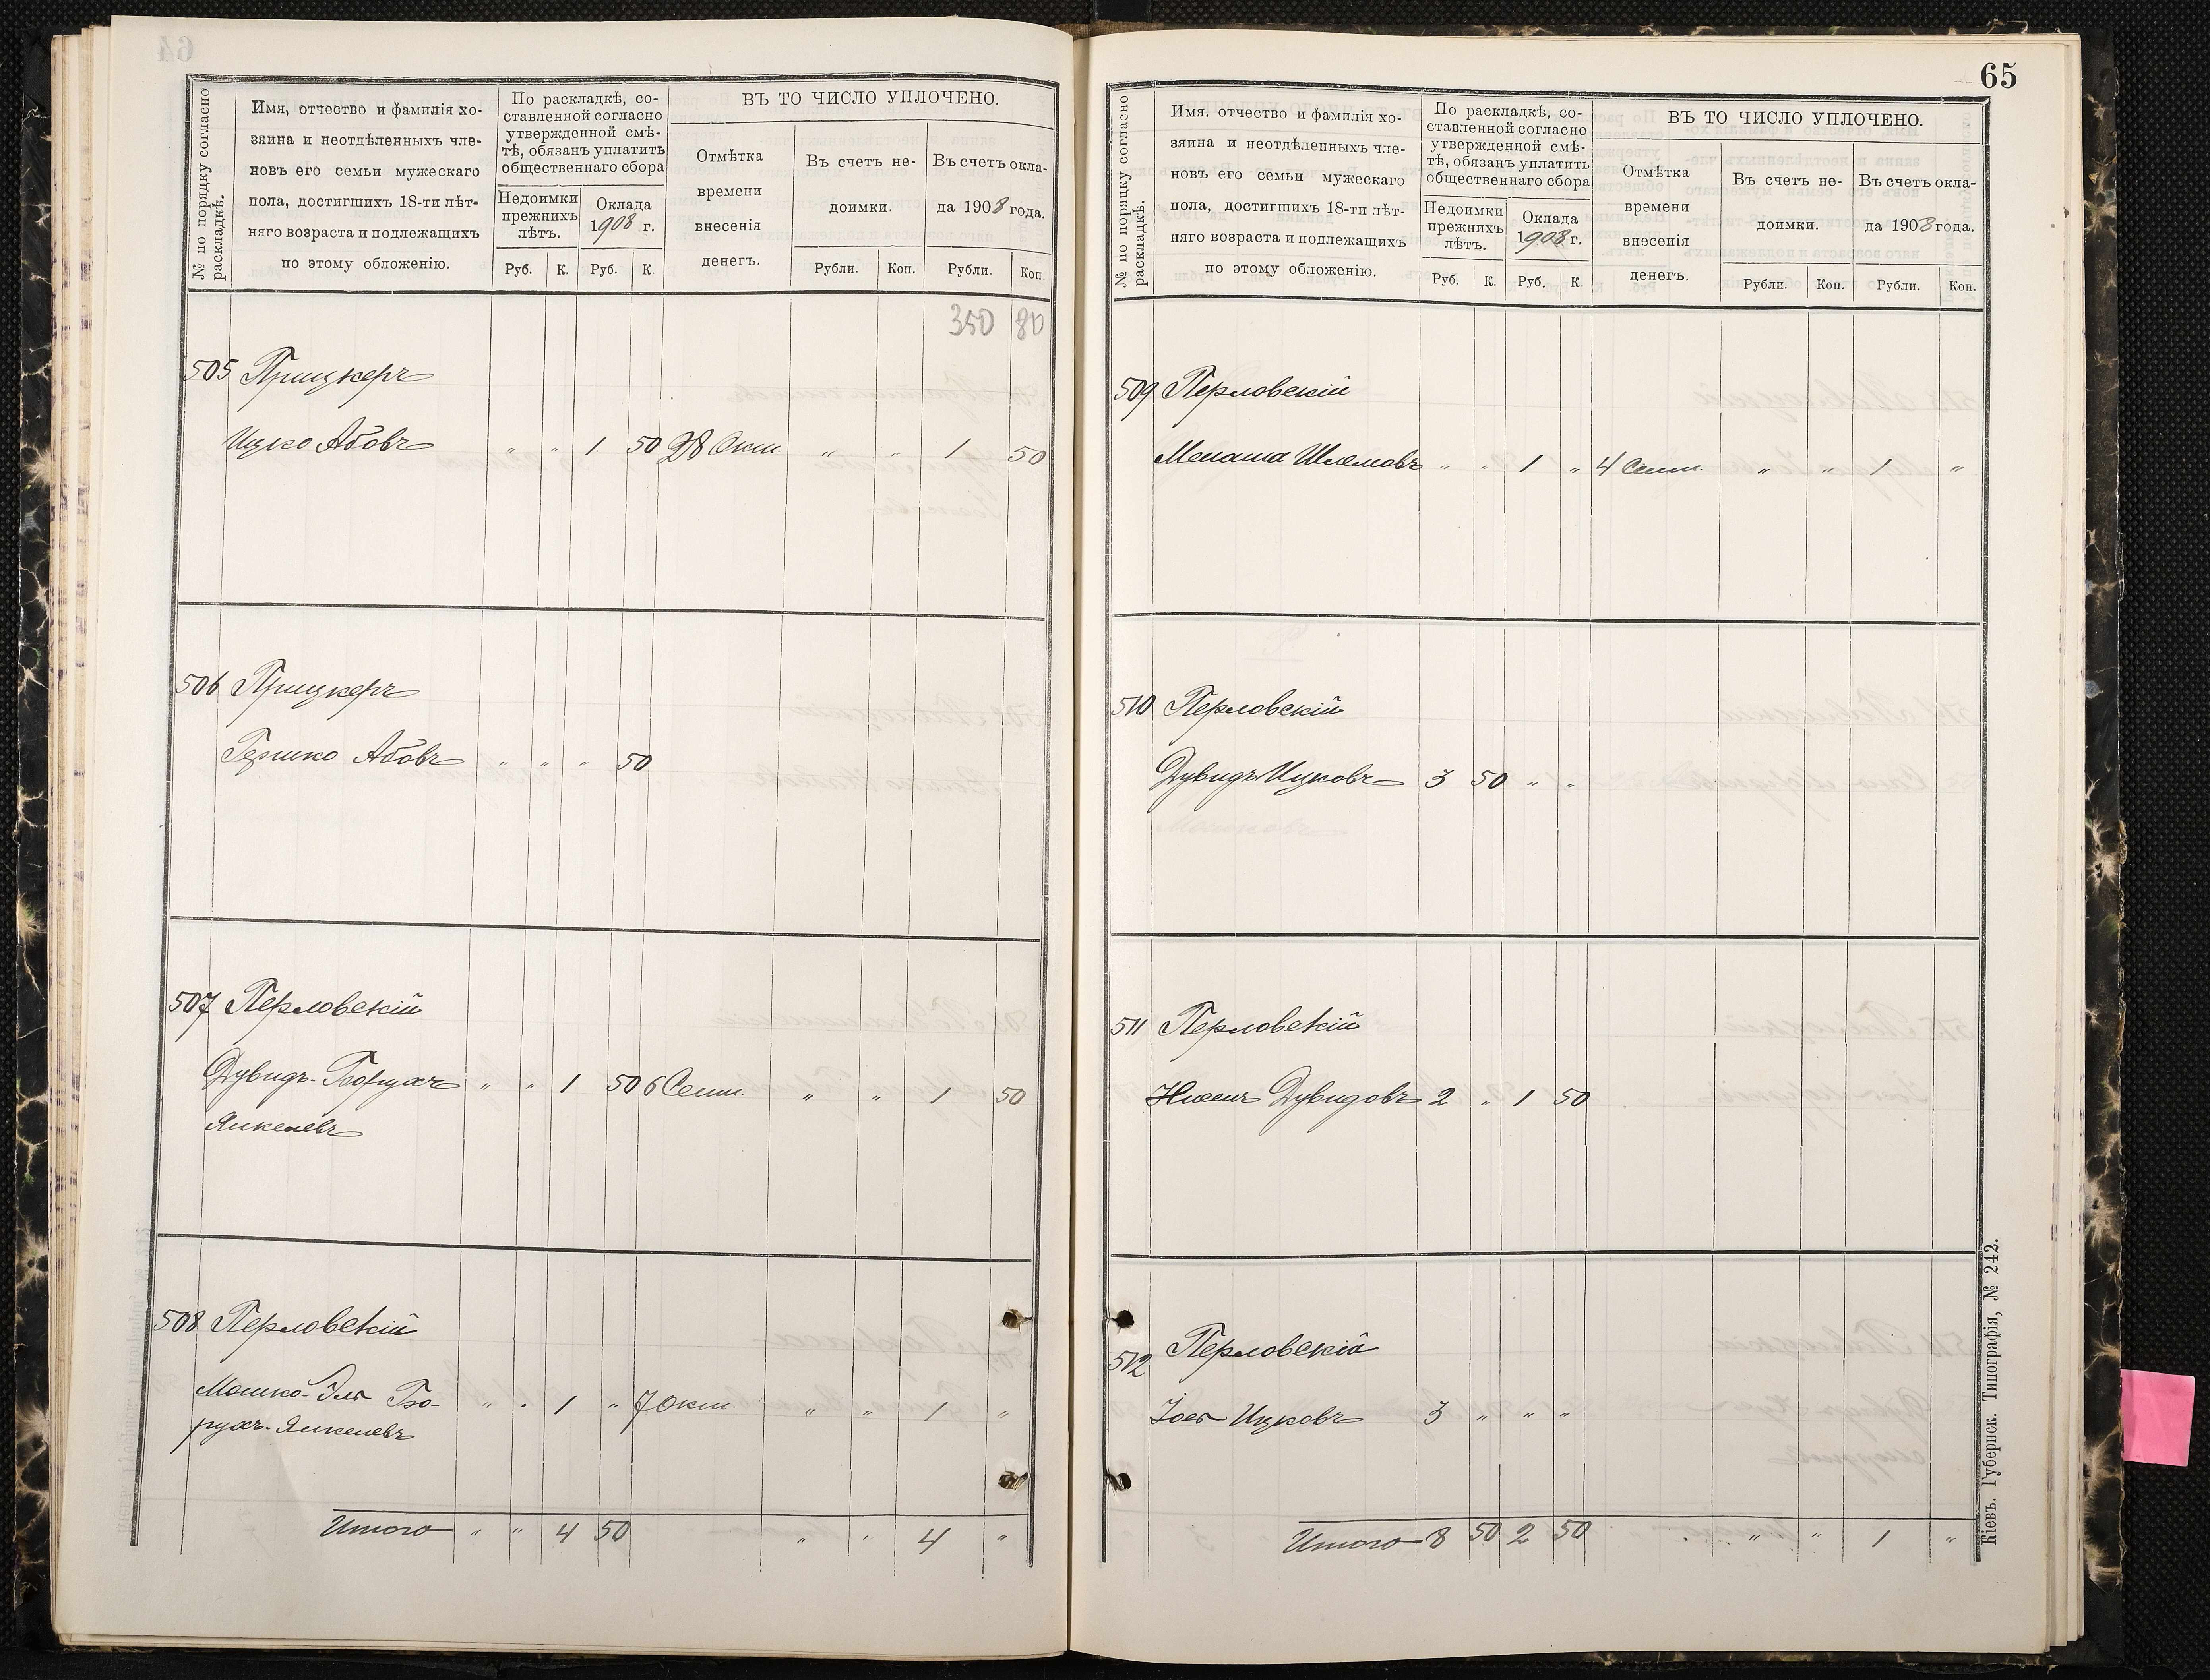 № по порядку согласно раскладкѣ.
Имя, отчество и фамилія хо-
зяина и неотдѣленныхъ чле-
новъ его семьи мужескаго
пола, достигшихъ 18-ти лѣт-
няго возраста и подлежащихъ
по этому обложенію.
По раскладкѣ, со-
ставленной согласно
утвержденной смѣ-
тѣ, обязанъ уплатить
общественнаго сбора
Недоимки
прежнихъ
лѣтъ.
Оклада
1908 г.
Руб. К. Руб. К.
ВЪ ТО ЧИСЛО УПЛОЧЕНО.
Отмѣтка
времени
внесенія
денегъ.
Въ счетъ не-
доимки.
Въ счетъ окла-
да 1908 года.
Рубли. Коп. Рубли. Коп.
350 80
505 Прицкеръ
Ицко Абовъ " " 1 50 28 Окт. " " 1 50
506 Прицкеръ
Гершко Абовъ " " " 50
507 Перловскій
Дувидъ-Борухъ " " 1 50 6 Сент. " " 1 50
Янкелевъ
508 Перловскій
Мошко-Эля Бо- " " 1 " 7 Окт. " " 1 "
рухъ-Янкелевъ
Итого " " 4 50 " " 4 "
65
№ по порядку согласно раскладкѣ.
Имя. отчество и фамилія хо-
зяина и неотдѣленныхъ чле-
новъ его семьи мужескаго
пола, достигшихъ 18-ти лѣт-
няго возраста и подлежащихъ
по этому обложенію.
По раскладкѣ, со-
ставленной согласно
утвержденной смѣ-
тѣ, обязанъ уплатить
общественнаго сбора
Недоимки
прежнихъ
лѣтъ.
Оклада
1908 г.
Руб. К. Руб. К.
ВЪ ТО ЧИСЛО УПЛОЧЕНО.
Отмѣтка
времени
внесенія
денегъ.
Въ счетъ не-
доимки.
Въ счетъ окла-
да 1908 года.
Рубли. Коп. Рубли. Коп.
509 Перловскій
Менаша Шлемовъ " " 1 " 4 Сент. " " 1 "
510 Перловскій
Дувидъ Ицковъ 3 50 " "
511 Перловскій
Нисенъ Дувидовъ 2 " 1 50
512 Перловскій
Іось Ицковъ 3 " " "
Итого 8 50 2 50 " " 1 "
Кіевъ. Губернск. Типографія, № 242.